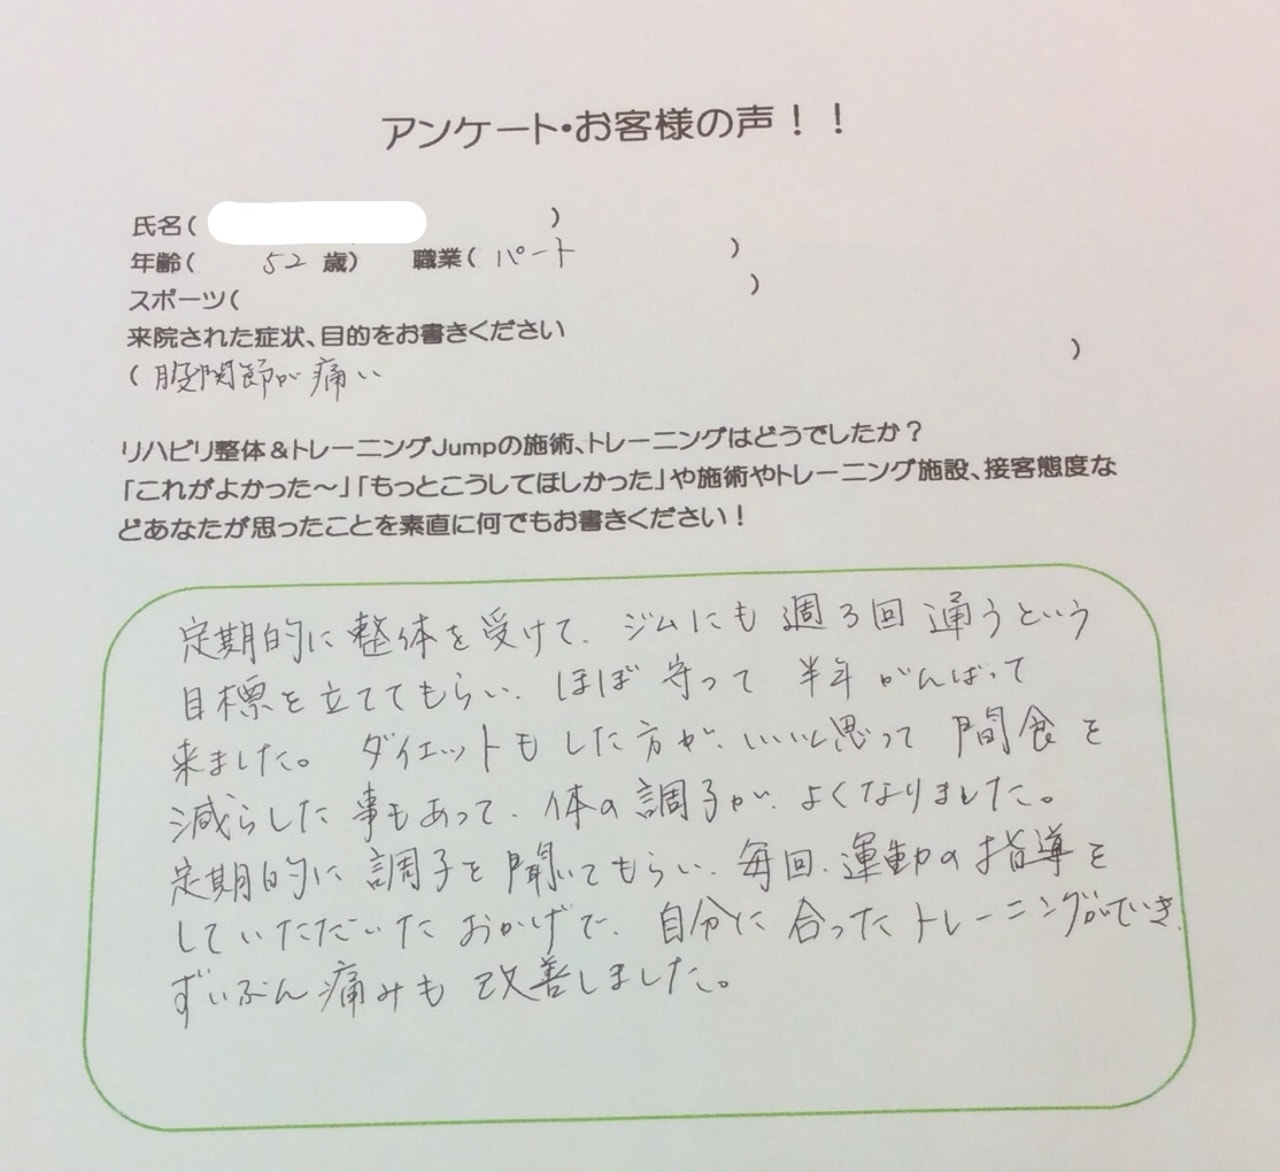 アンケート・お客様の声！！
氏名(　　　　)
年齢(　52　歳)　職業( パート　　　)
スポーツ(　　　　)
来院された症状、目的をお書きください
( 股関節が痛い　　　　)
リハビリ整体＆トレーニングJumpの施術、トレーニングはどうでしたか？
「これがよかった～」「もっとこうしてほしかった」や施術やトレーニング施設、接客態度な
どあなたが思ったことを素直に何でもお書きください！
定期的に整体を受けて、ジムにも週3回通うという
目標を立ててもらい、ほぼ守って半年がんばって
来ました。ダイエットもした方が、いいと思って間食を
減らした事もあって、体の調子が、よくなりました。
定期的に調子を聞いてもらい、毎回、運動の指導を
していただいたおかげで、自分に合ったトレーニングができ、
ずいぶん痛みも改善しました。